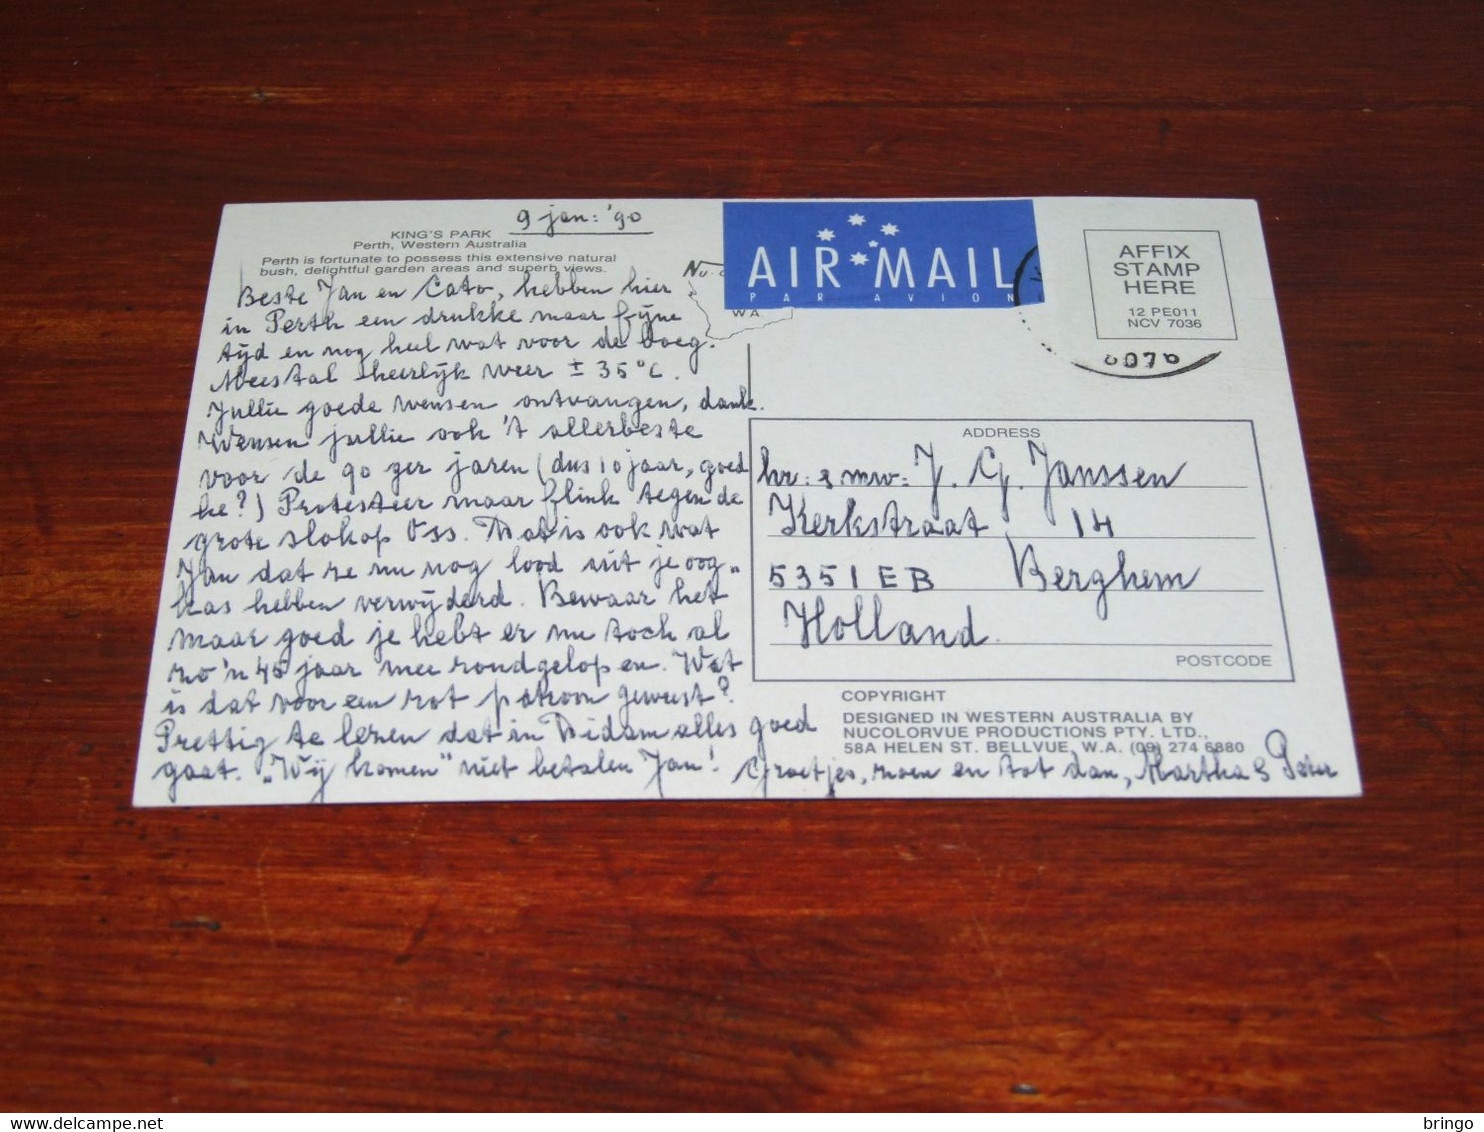 9 jan: '90
KING'S PARK
Perth, Western Australia
Perth is fortunate to possess this extensive natural
bush, delightful garden areas and superb views.
Beste Jan en Cato, hebben hier
in Perth een drukke maar fijne
tijd en nog heel wat voor de boeg.
Meestal heerlijk weer ± 35°C.
Jullie goede wensen ontvangen, dank.
Wensen jullie ook 't allerbeste
voor de 90 ger jaren (dus 10 jaar, goed
he?) Protesteer maar flink tegen de
grote slokop Oss. Dat is ook wat
Jan dat ze nu nog lood uit je oog„
kas hebben verwijderd. Bewaar het
maar goed je hebt er nu toch al
zo'n 45 jaar mee rondgelopen. Wat
is dat voor een rot patroon geweest?
Prettig te lezen dat in Didam alles goed
gaat. „Wij komen" niet betalen Jan! Groetjes, zoen en tot dan, Martha & Peter
AIR MAIL
PAR AVION
WA
AFFIX
STAMP
HERE
12 PE011
NCV 7036
6076
ADDRESS
hr: & mw: J. G. Janssen
Kerkstraat 14
5351EB Berghem
Holland
POSTCODE
COPYRIGHT
DESIGNED IN WESTERN AUSTRALIA BY
NUCOLORVUE PRODUCTIONS PTY. LTD.,
58A HELEN ST. BELLVUE, W.A. (09) 274 6880
delcampe.net
bringo